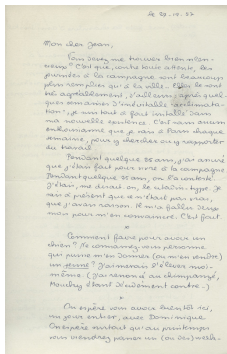 le 29-10-57
Mon cher Jean,
Vous devez me trouver bien silen-
cieux? C'est que, contre toute attente, les
journées à la campagne sont beaucoup
plus remplies qu'à la ville. Elles le sont
très agréablement, d'ailleurs; après quel-
ques semaines d'inévitable acclimata-
tion, je suis tout à fait installé dans
ma nouvelle existence. C'est sans aucun
enthousiasme que je vais à Paris chaque
semaine, pour y chercher ou y rapporter
du travail.
Pendant quelque 25 ans, j'ai assuré
que j'étais fait pour vivre à la campagne.
Pendant quelque 25 ans, on l'a contesté.
J'étais, me disait-on, le citadin-type. Je
sais à présent que ce n'était pas vrai,
que j'avais raison. Il m'a fallu deux
mois pour m'en convaincre. C'est fait.
*
Comment faire pour avoir un
chien? Ne connaissez-vous personne
qui puisse m'en donner (ou m'en vendre)
un jeune? J'aimerais l'élever moi-
même. (J'ai renoncé au chimpanzé,
étant décidément contre.)
*
On espère vous avoir bientôt ici,
un jour entier, avec Dominique.
On espère surtout qu'au printemps
vous viendrez passer un (ou des) week-